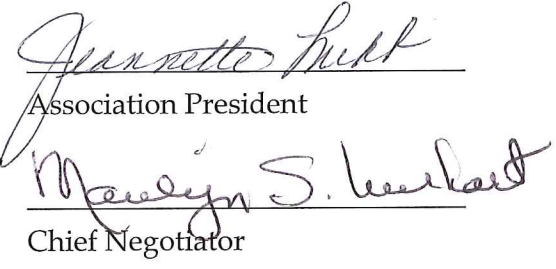 Jeannette
Association President
Marilyn S.
Chief Negotiator